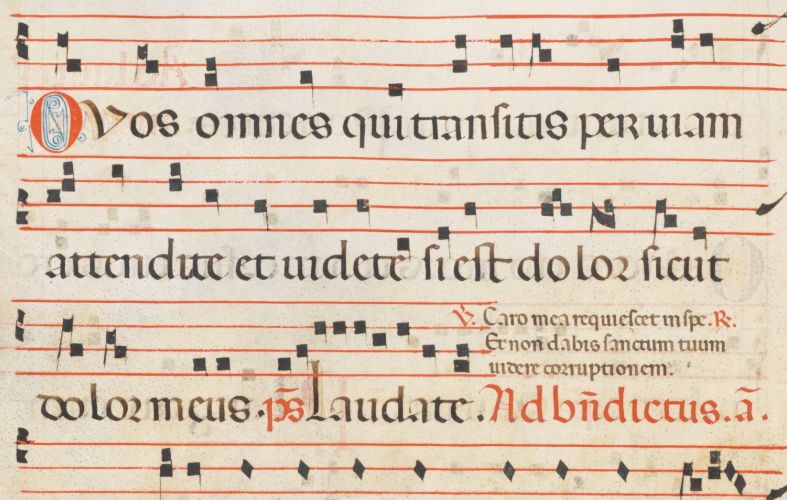 O vos omnes qui transitis per uiam
attendite et uidete si est dolor sicut
℣. Caro mea requiescet in spe. ℟.
Et non dabis sanctum tuum
uidere corruptionem.
dolor meus. p̄s Laudate. Ad bn̄dictus. ā.